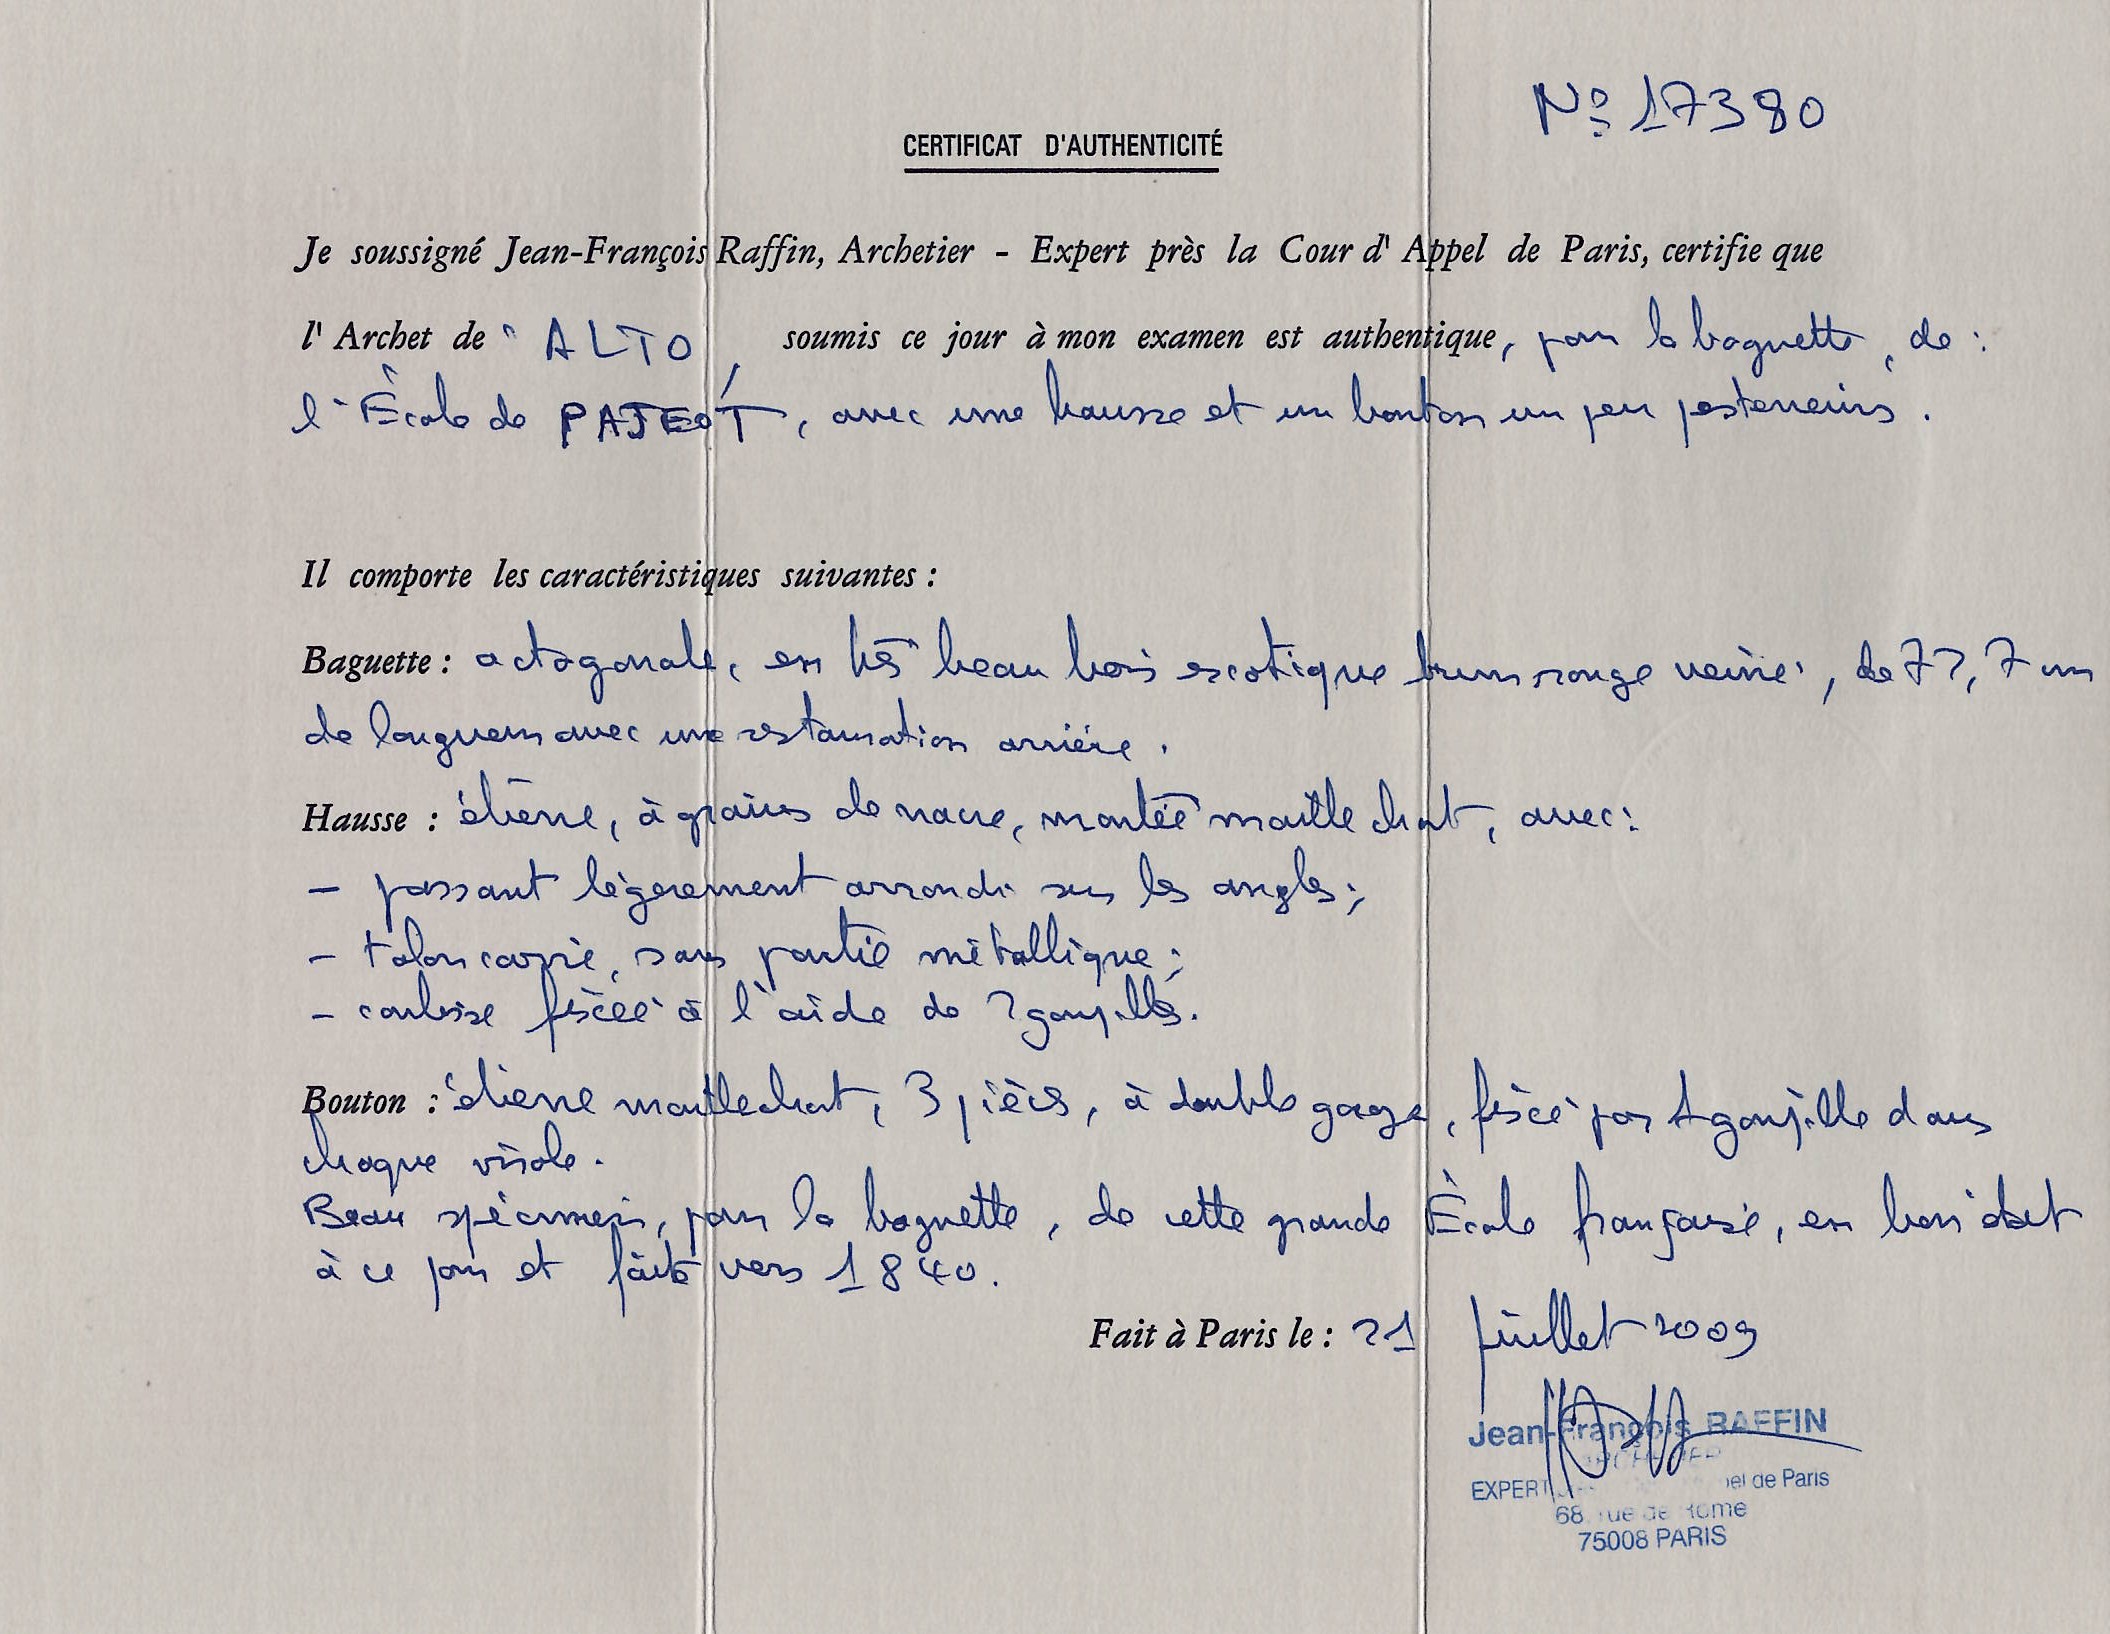 N° 17380
CERTIFICAT D'AUTHENTICITÉ
Je soussigné Jean-François Raffin, Archetier - Expert près la Cour d'Appel de Paris, certifie que
l'Archet de ALTO, soumis ce jour à mon examen est authentique, pour la baguette, de :
l'École de PAJEOT, avec une hausse et un bouton un peu postérieurs.
Il comporte les caractéristiques suivantes :
Baguette : octogonale, en très beau bois exotique brun rouge veiné, de 72,7 cm
de longueur avec une restauration arrière.
Hausse : ébène, à grains de nacre, montée maillechort, avec :
- passant légèrement arrondi sur les angles ;
- talon carré, sans partie métallique ;
- coulisse fixée à l'aide de 2 goupilles.
Bouton : ébène maillechort, 3 pièces, à double gorge, fixé par 1 goupille dans
chaque virole.
Beau spécimen, pour la baguette, de cette grande École française, en bon état
à ce jour et faite vers 1840.
Fait à Paris le : 21 juillet 2009
Jean-François RAFFIN
ARCHETIER
EXPERT de Paris
68, rue de Rome
75008 PARIS